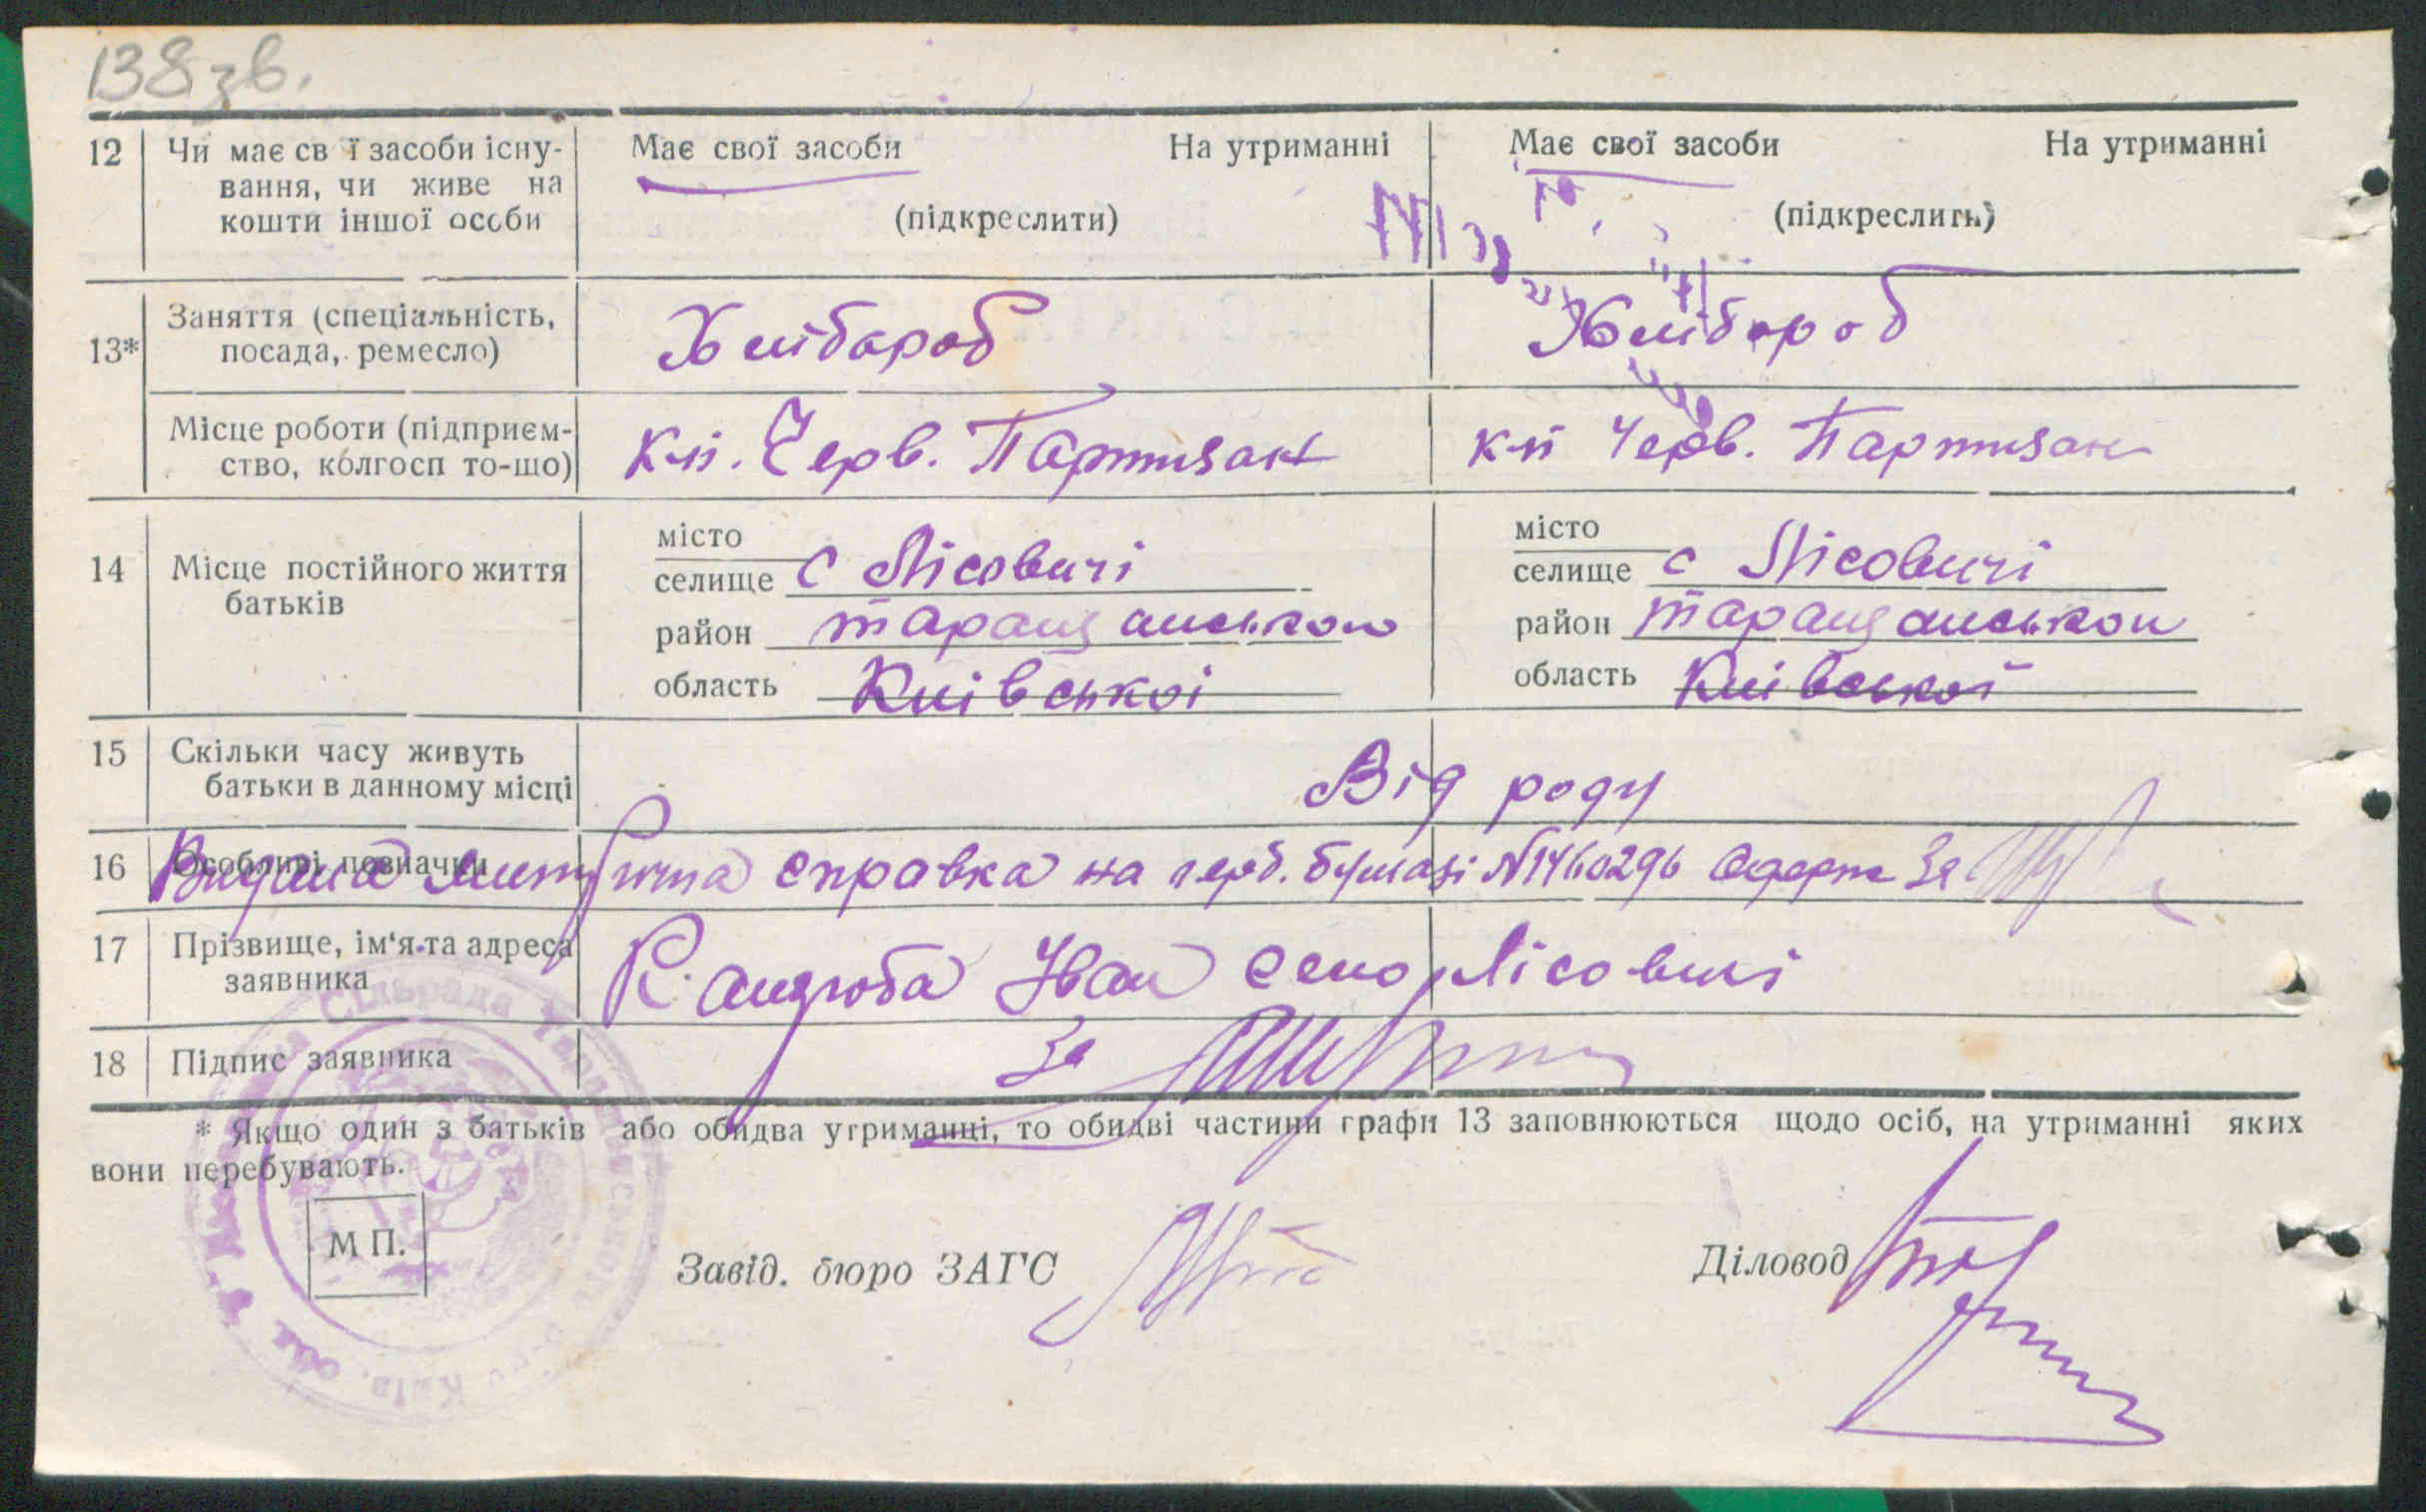 138 зв.
12 Чи має св ї засоби існу- Має свої засоби На утриманні Має свої засоби На утриманні
вання, чи живе на
кошти іншої особи (підкреслити) (підкреслить)
13* Заняття (спеціальність, Хлібороб Хлібороб
посада, ремесло)
Місце роботи (підприєм- к-п. Черв. Партизан к-п Черв. Партизан
ство, колгосп то-що)
14 Місце постійного життя батьків
місто
селище с Лісовичі
район таращанською
область Київської
місто
селище с Лісовичі
район таращанською
область Київської
15 Скільки часу живуть Від роду
батьки в данному місці
16 Особливі позначки
Видана справка на герб. бумазі №1460296 Одерж За
17 Прізвище, ім'я та адреса Кандюба Іван село Лісовичі
заявника
18 Підпис заявника За
* Якщо один з батьків або обидва утриманці, то обидві частини графи 13 заповнюються щодо осіб, на утриманні яких
вони перебувають.
М П.
Завід. бюро ЗАГС Діловод
Сільрада